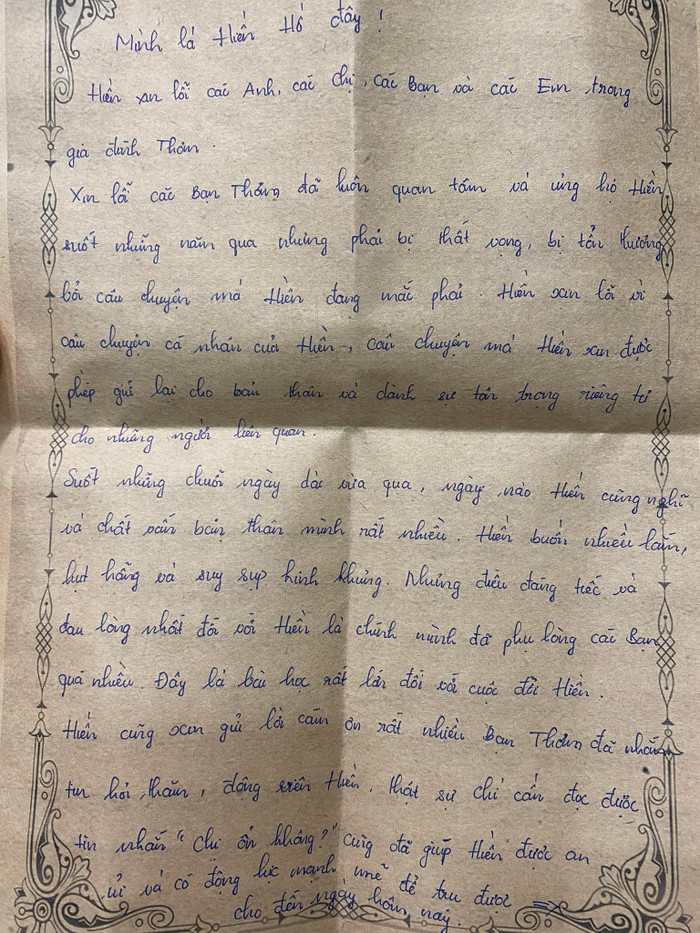 Mình là Hiền Hồ đây!
Hiền xin lỗi các Anh, các chị, các Bạn và các Em trong
gia đình Thơm.
Xin lỗi các Bạn Thơm đã luôn quan tâm và ủng hộ Hiền
suốt những năm qua nhưng phải bị thất vọng, bị tổn thương
bởi câu chuyện mà Hiền đang mắc phải. Hiền xin lỗi vì
câu chuyện cá nhân của Hiền, câu chuyện mà Hiền xin được
phép giữ lại cho bản thân và dành sự tôn trọng riêng tư
cho những người liên quan.
Suốt những chuỗi ngày dài vừa qua, ngày nào Hiền cũng nghĩ
và chất vấn bản thân mình rất nhiều. Hiền buồn nhiều lắm,
hụt hẫng và suy sụp kinh khủng. Nhưng điều đáng tiếc và
đau lòng nhất đối với Hiền là chính mình đã phụ lòng các Bạn
quá nhiều. Đây là bài học rất lớn đối với cuộc đời Hiền.
Hiền cũng xin gửi lời cảm ơn rất nhiều Bạn Thơm đã nhắn
tin hỏi thăm, động viên Hiền. Thật sự chỉ cần đọc được
tin nhắn "Chị ổn không?" cũng đã giúp Hiền được an
ủi và có động lực mạnh mẽ để trụ được =>
cho đến ngày hôm nay.